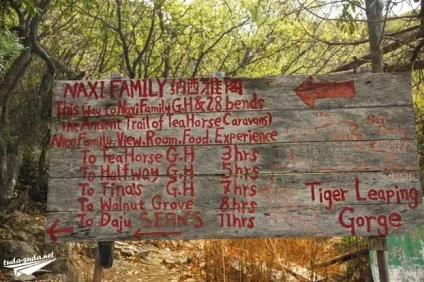 NAXI FAMILY 纳西雅阁
This way to Naxi Family G.H & 28 bends
The Ancient Trail of Tea Horse Caravans)
Nice Family. View, Room. Food. Experience
To Tea Horse G.H 3hrs
To Halfway G.H 5hrs
To Tina's G.H 7hrs
To Walnut Grove 8hrs
To Daju SEAN'S 11hrs
Tiger Leaping
Gorge
tuda-suda.net